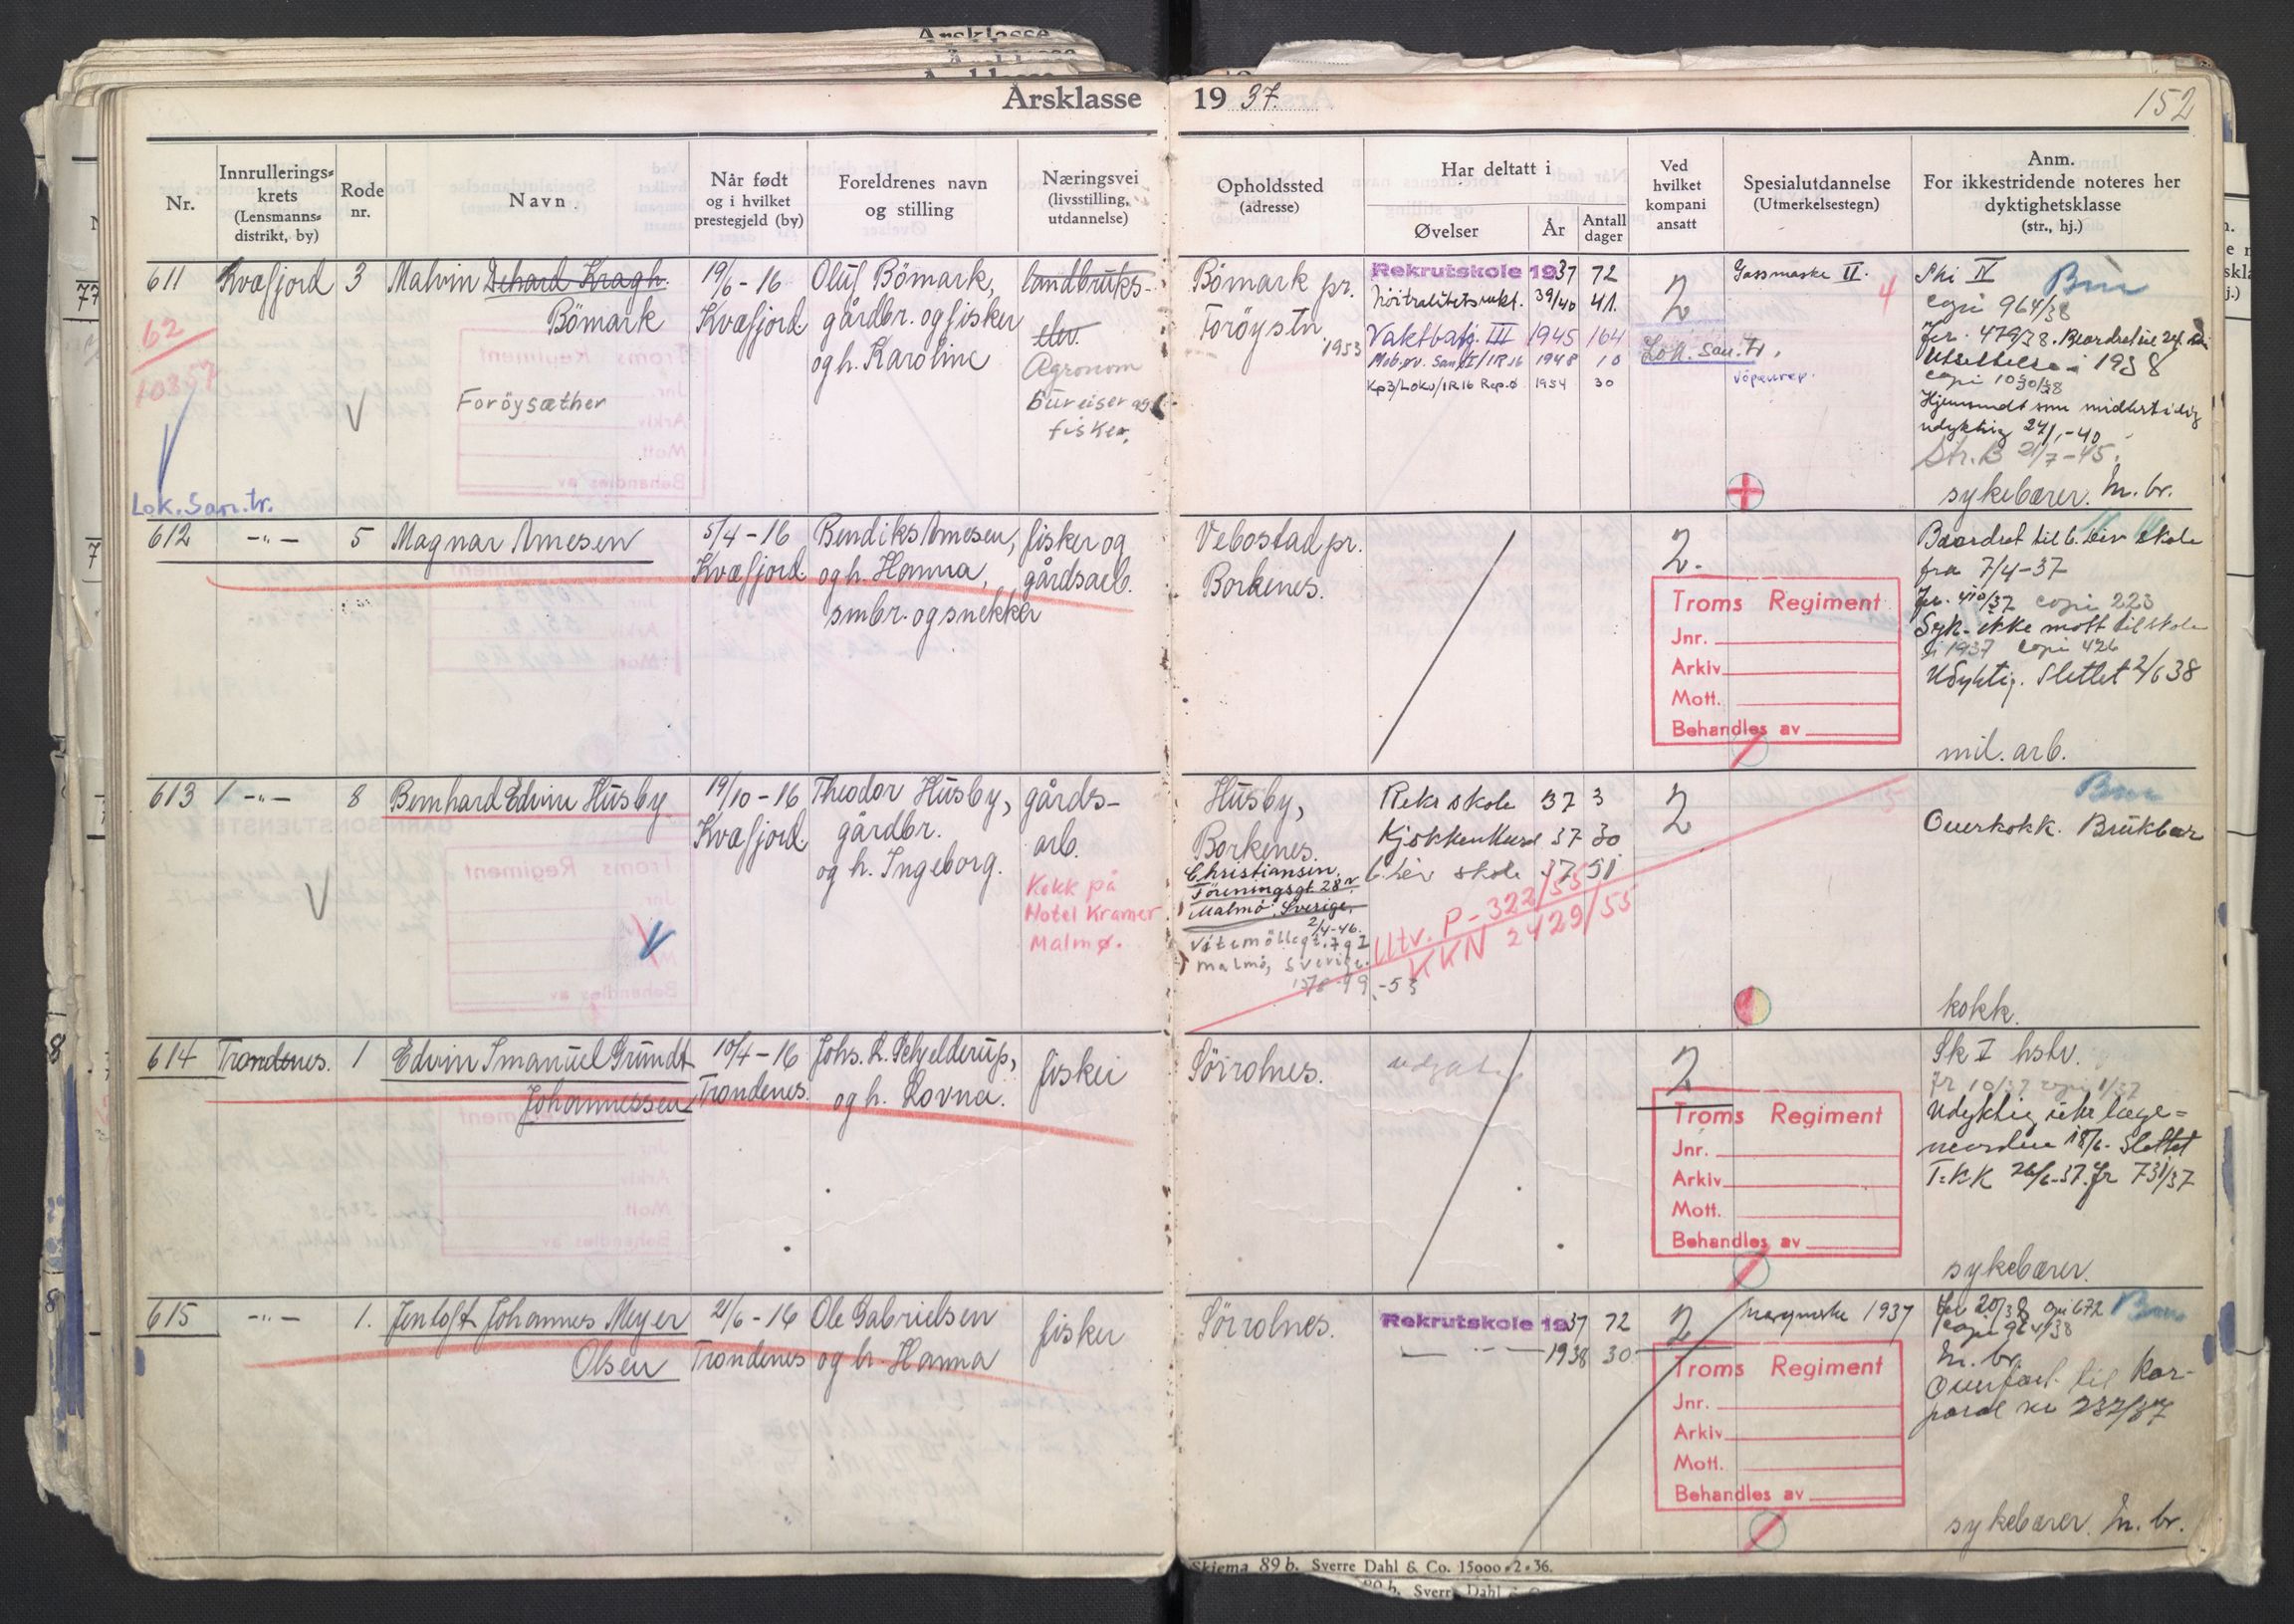 Årsklasse 1937. 152
Nr. Innrullerings-krets (Lensmanns-distrikt, by) Rode nr. Navn Når født og i hvilket prestegjeld (by) Foreldrenes navn og stilling Næringsvei (livsstilling, utdannelse)
Opholdssted (adresse) Har deltatt i Øvelser År Antall dager Ved hvilket kompani ansatt Spesialutdannelse (Utmerkelsestegn) Anm. For ikkestridende noteres her dyktighetsklasse (str., hj.)
611 Kvæfjord 3 Malvin Dehard Kragh Bömark
Foröysæther
62
10357
Lok. San. tr.
19/6-16 Kvæfjord
Oluf Bömark,
gårdbr. og fisker
og h. Karoline
landbruks-
elev.
Agronom
bureiser og
fisker.
Bömark pr.
Foröystn.
1953
Rekrutskole 1937 72
Nöitralitetsvakt. 39/40 41
Vaktbatj. III 1945 164
Mob.øv. San 1948 10
Kp3/Loko/IR16 Rep.ø 1954 30
2
Lok. San. tr.
Gassmaske II. 4
Våpenrep.
Ski IV
copi 964/38
Jr. 479/38. Beordret til
Utsettelse i 1938
copi 1030/38
Hjemsendt som midlertidig
udyktig 24/1-40
Str. B 21/7-45.
sykebærer. M. br.
612 -"- 5 Magnar Arnesen
5/4-16 Kvæfjord
Bendiks Arnesen,
og h. Hanna,
smbr. og snekker
fisker og
gårdsarb.
Vebostad pr.
Borkenes.
2.
Troms Regiment
Jnr.
Arkiv
Mott.
Behandles av
Beordret til 6. Div skole
fra 7/4-37
Jr. 410/37 copi 223
Syk - ikke mött til skole
i 1937 copi 426
Udyktig. Slettet 2/6 38
mil. arb.
613 -"- 8 Bernhard Edvin Husby
19/10-16 Kvæfjord
Theodor Husby,
gårdbr.
og h. Ingeborg.
gårds-
arb.
Kokk på
Hotel Kramer
Malmø.
Husby,
Borkenes.
Christiansen,
Föreningsgt. 28
Malmö Sverige.
2/4-46.
Malmö, Sverige.
-53
Rekr skole 37 3
Kjökkenkurs 37 30
6. Div skole 37 51
Utv. P-322/55
KKN 2429/55
2
5
Overkokk. Brukbar
kokk.
614 Trondenes. 1 Edvin Imanuel Grundt
Johannessen
10/4-16 Trondenes.
Johs. L. Schjelderup,
og h. Lovna.
fisker
Sörrolnes.
udyktig
2
Troms Regiment
Jnr.
Arkiv
Mott.
Behandles av
Sk I hslv.
Jr 10/37 copi 1/37
Udyktig læge-
18/6. Slettet
T.K.K 26/6-37. Jr 731/37
sykebærer.
615 -"- 1. Jentoft Johannes Meyer
Olsen
21/6-16 Trondenes
Ole Gabrielsen
og h. Hanna
fisker
Sörrolnes.
Rekrutskole 1937 72
-"- 1938 30
2
1937
Troms Regiment
Jnr.
Arkiv
Mott.
Behandles av
Jr 20/38 copi 672
copi 964/38
M. br.
Overfört til kor-
poral
sykebærer. M. br.
Skjema 89 b. Sverre Dahl & Co. 15000.2.36.